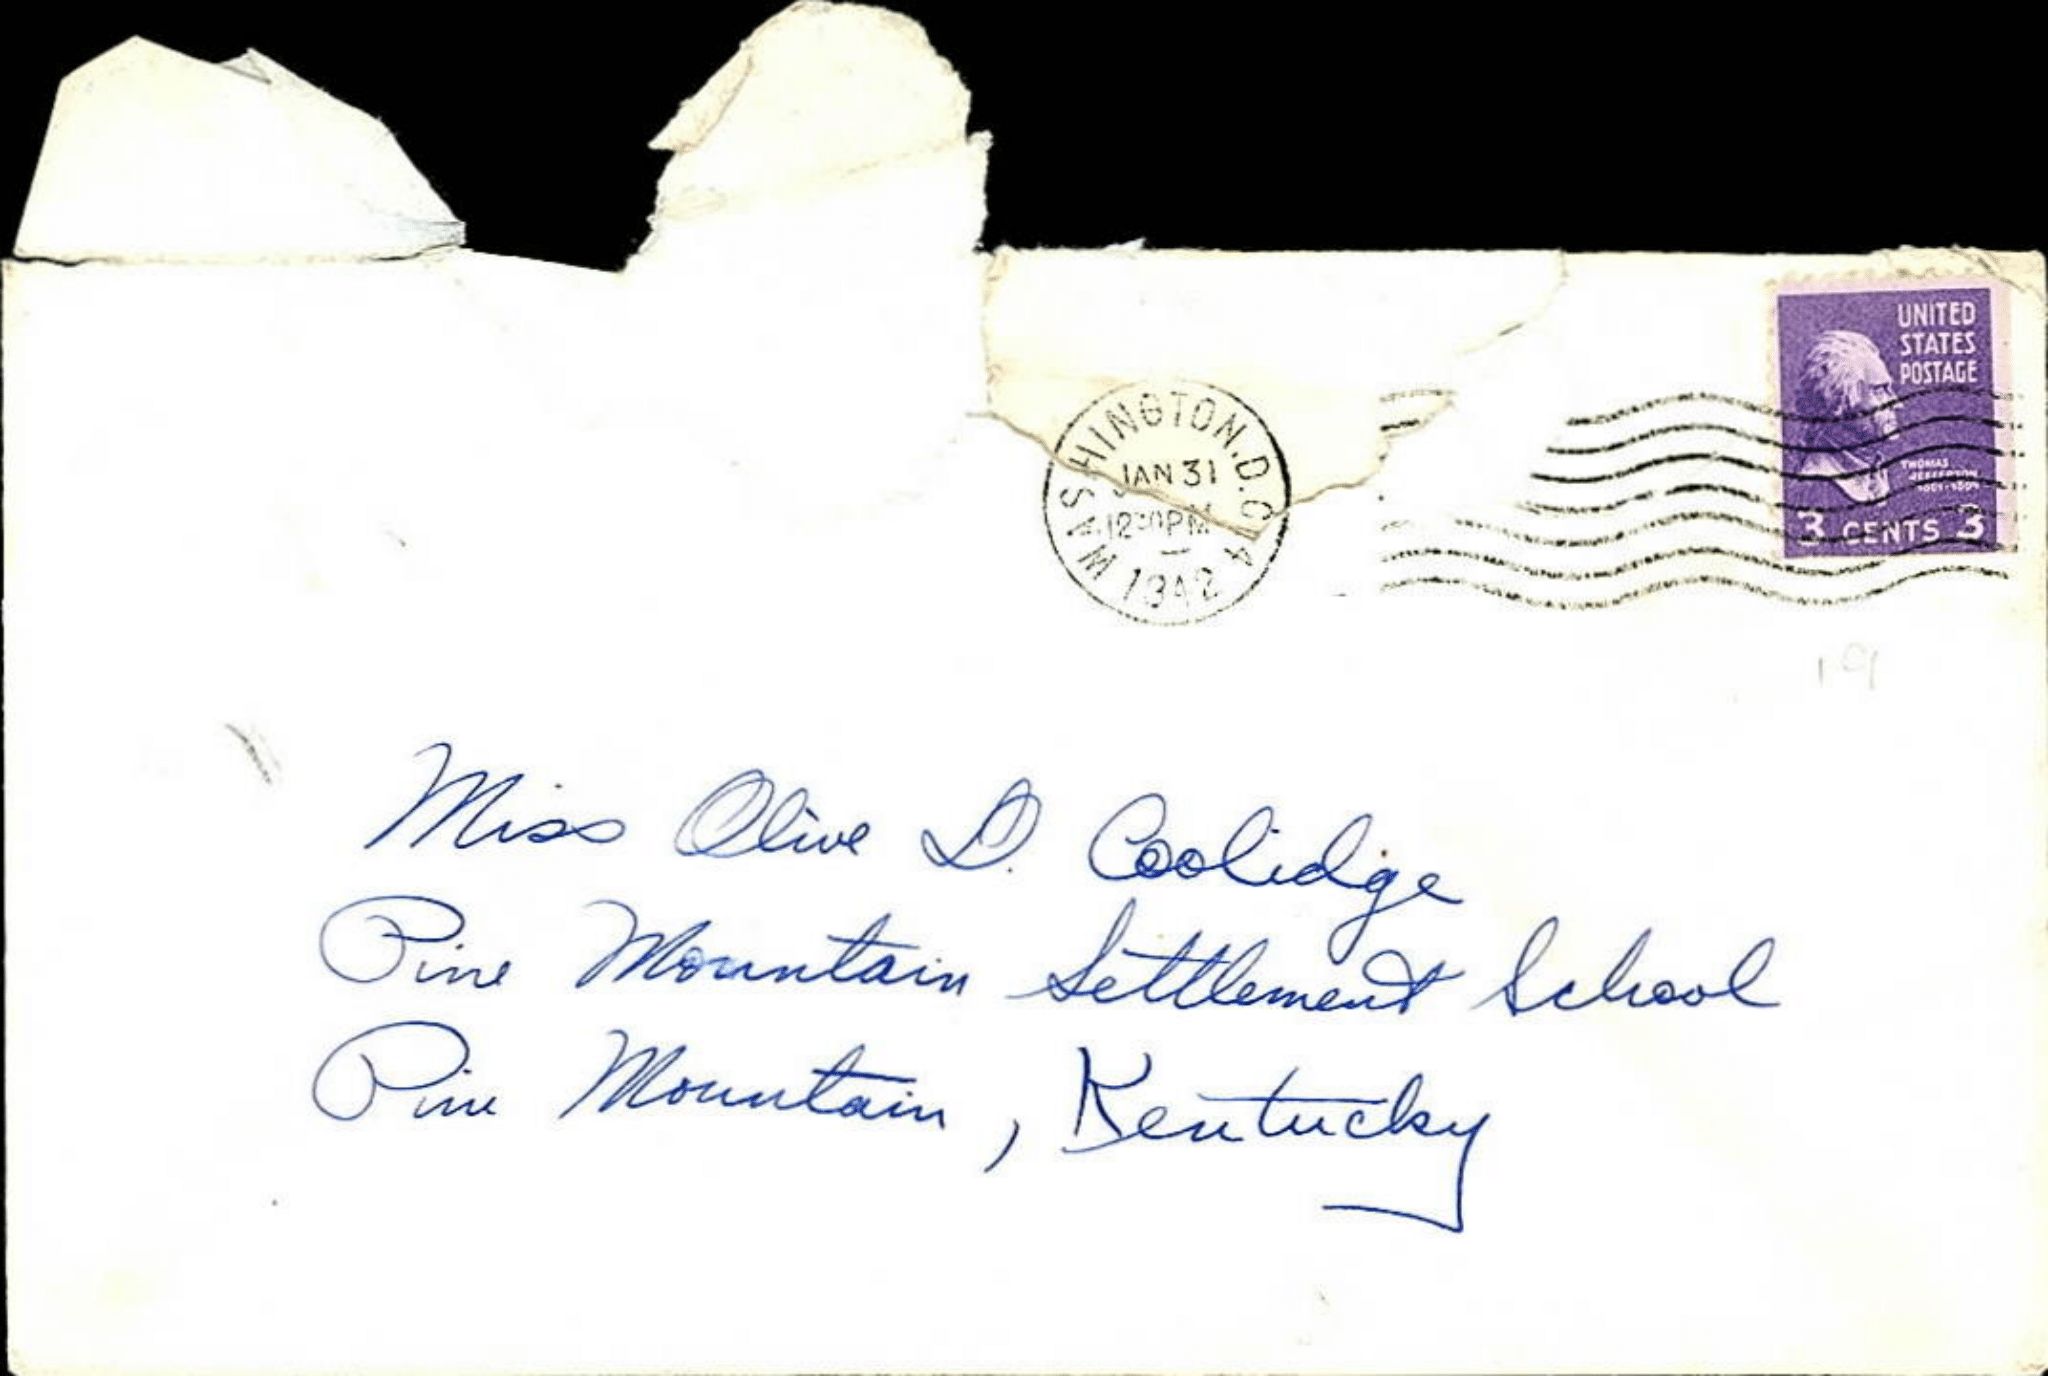 UNITED
STATES
POSTAGE
THOMAS
JEFFERSON
3 CENTS 3
WASHINGTON, D.C. 4
JAN 31
PM
1942
19
Miss Olive D. Coolidge
Pine Mountain Settlement School
Pine Mountain, Kentucky